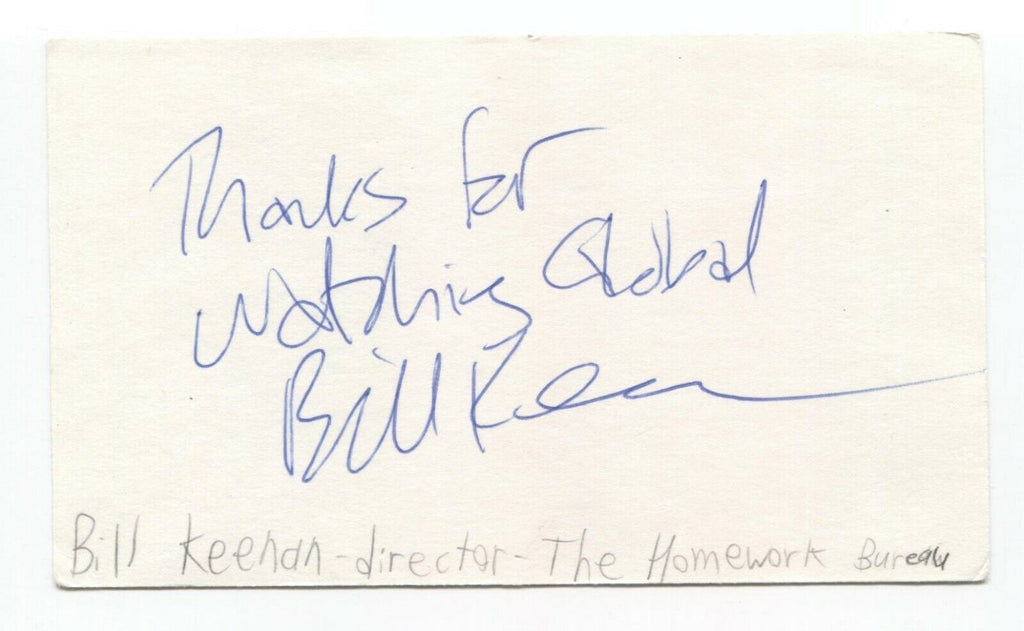 Thanks for
Watching Global
Bill Keenan
Bill Keenan - director - The Homework Bureau